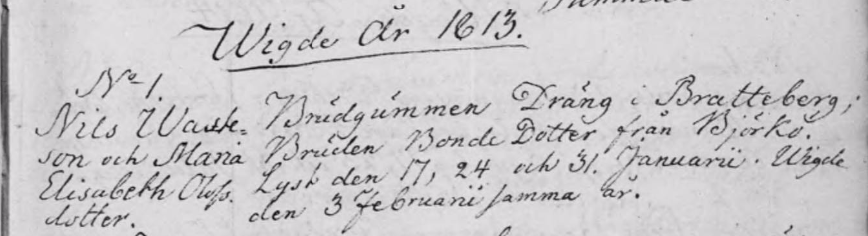 Wigde År 1813.
No 1.
Nils Wasse= Brudgummen Dräng i Bratteberg;
son och Maria Bruden Bonde Dotter från Björkö.
Elisabeth Olofs. Lyst den 17, 24 och 31. Januarii. Wigde
dotter. den 3 Februarii samma år.